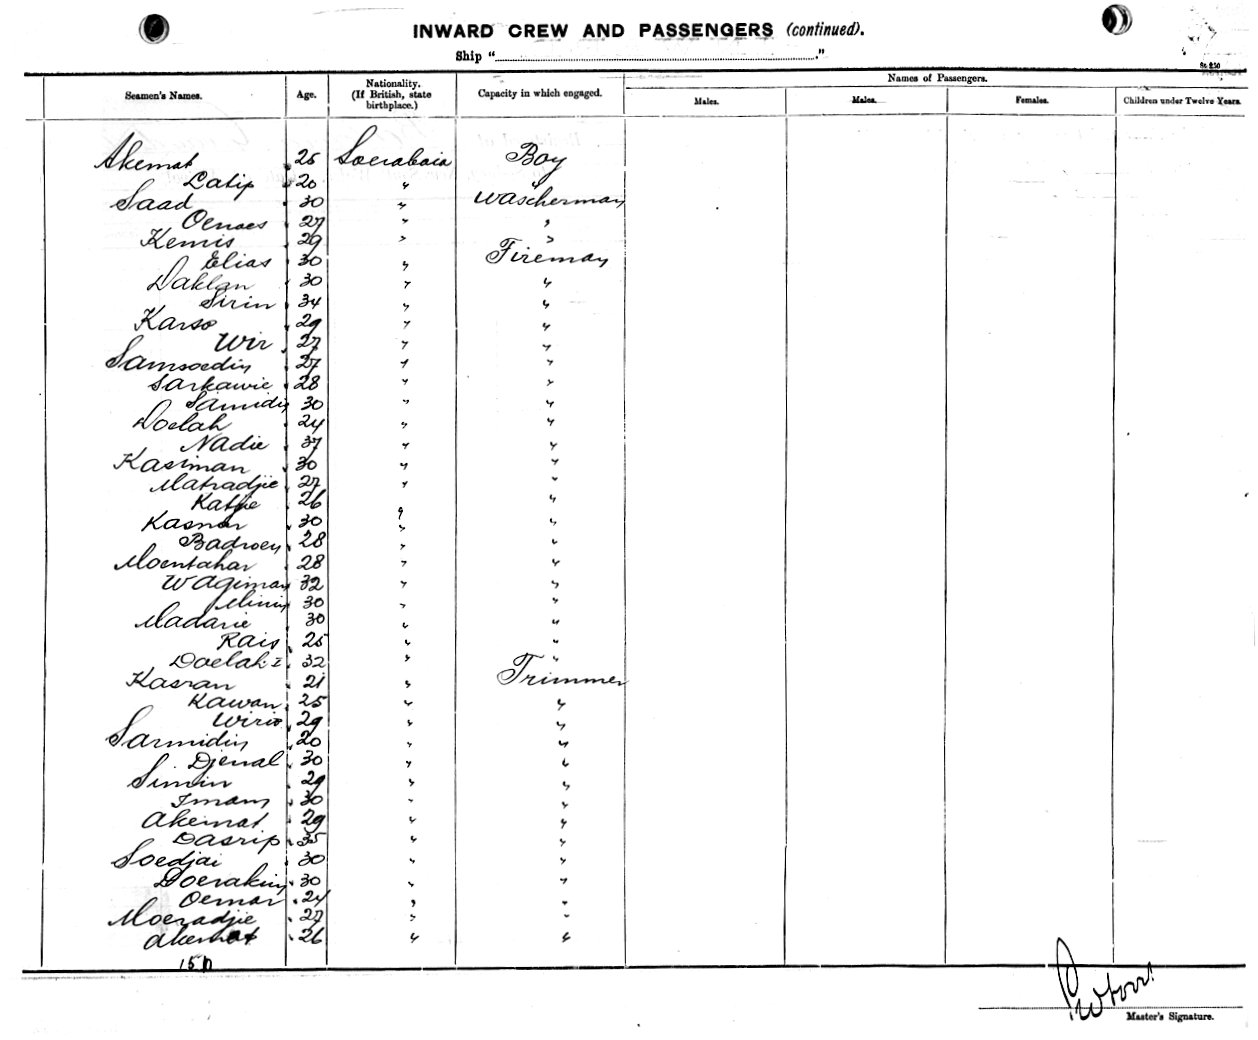 INWARD CREW AND PASSENGERS (continued).
Ship " ."
Seamen's Names. Age. Nationality. (If British, state birthplace.) Capacity in which engaged. Names of Passengers.
Males. Males. Females. Children under Twelve Years.
Akemat 25 Soerabaia Boy
Latip 20 " "
Saad 30 " Wascherman
Oenoes 27 " "
Kemis 29 " "
Elias 30 " Fireman
Daklan 30 " "
Sirin 34 " "
Karso 29 " "
Wir 27 " "
Samsoedin 27 " "
Sarkawie 28 " "
Samidin 30 " "
Doelah 24 " "
Nadie 37 " "
Kasiman 30 " "
Matradjie 27 " "
Katjie 26 " "
Kasnar 30 " "
Badroen 28 " "
Moentahar 28 " "
Wagiman 32 " "
Minin 30 " "
Madarie 30 " "
Rais 25 " "
Doelah I 32 " "
Kasran 21 " Trimmer
Kawan 25 " "
Wirio 29 " "
Sarmidin 20 " "
Djenal 30 " "
Simin 29 " "
Imam 30 " "
Akemat 29 " "
Dasrip 35 " "
Soedjai 30 " "
Doerakim 30 " "
Oemar 24 " "
Moeradjie 27 " "
Akemat 26 " "
Master's Signature.